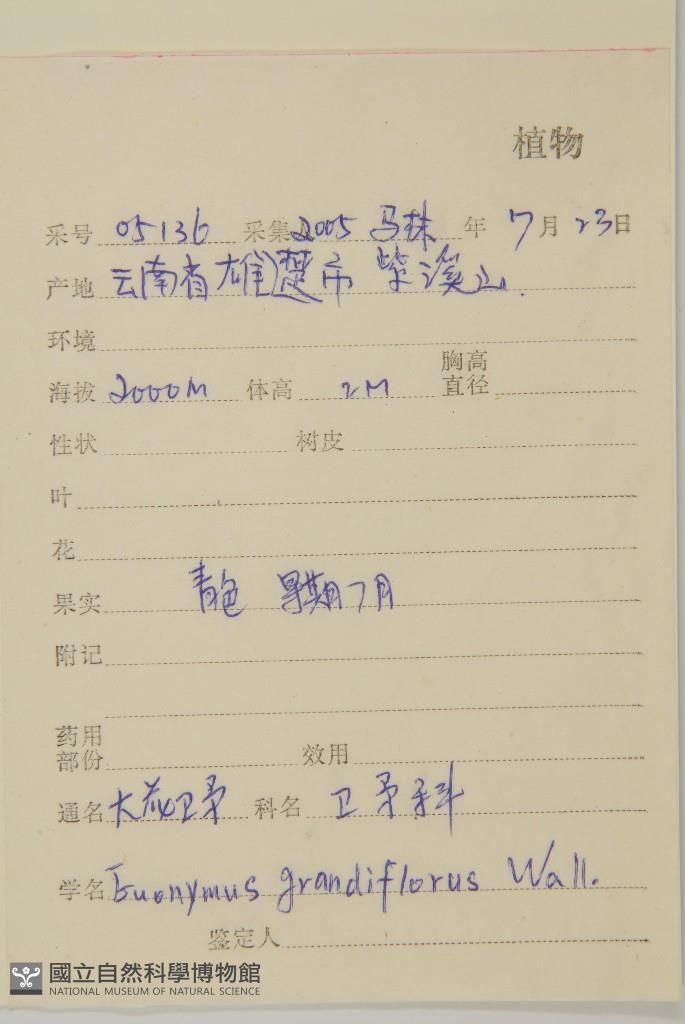 植物
采号 05136 采集 2005 马林 年 7 月 23 日
产地 云南省雄楚市紫溪山.
环境
海拔 2000M 体高 2M 胸高直径
性状 树皮
叶
花
果实 青色 果期7月
附记
药用部份 效用
通名 大花卫矛 科名 卫矛科
学名 Euonymus grandiflorus Wall.
鉴定人
國立自然科學博物館
NATIONAL MUSEUM OF NATURAL SCIENCE